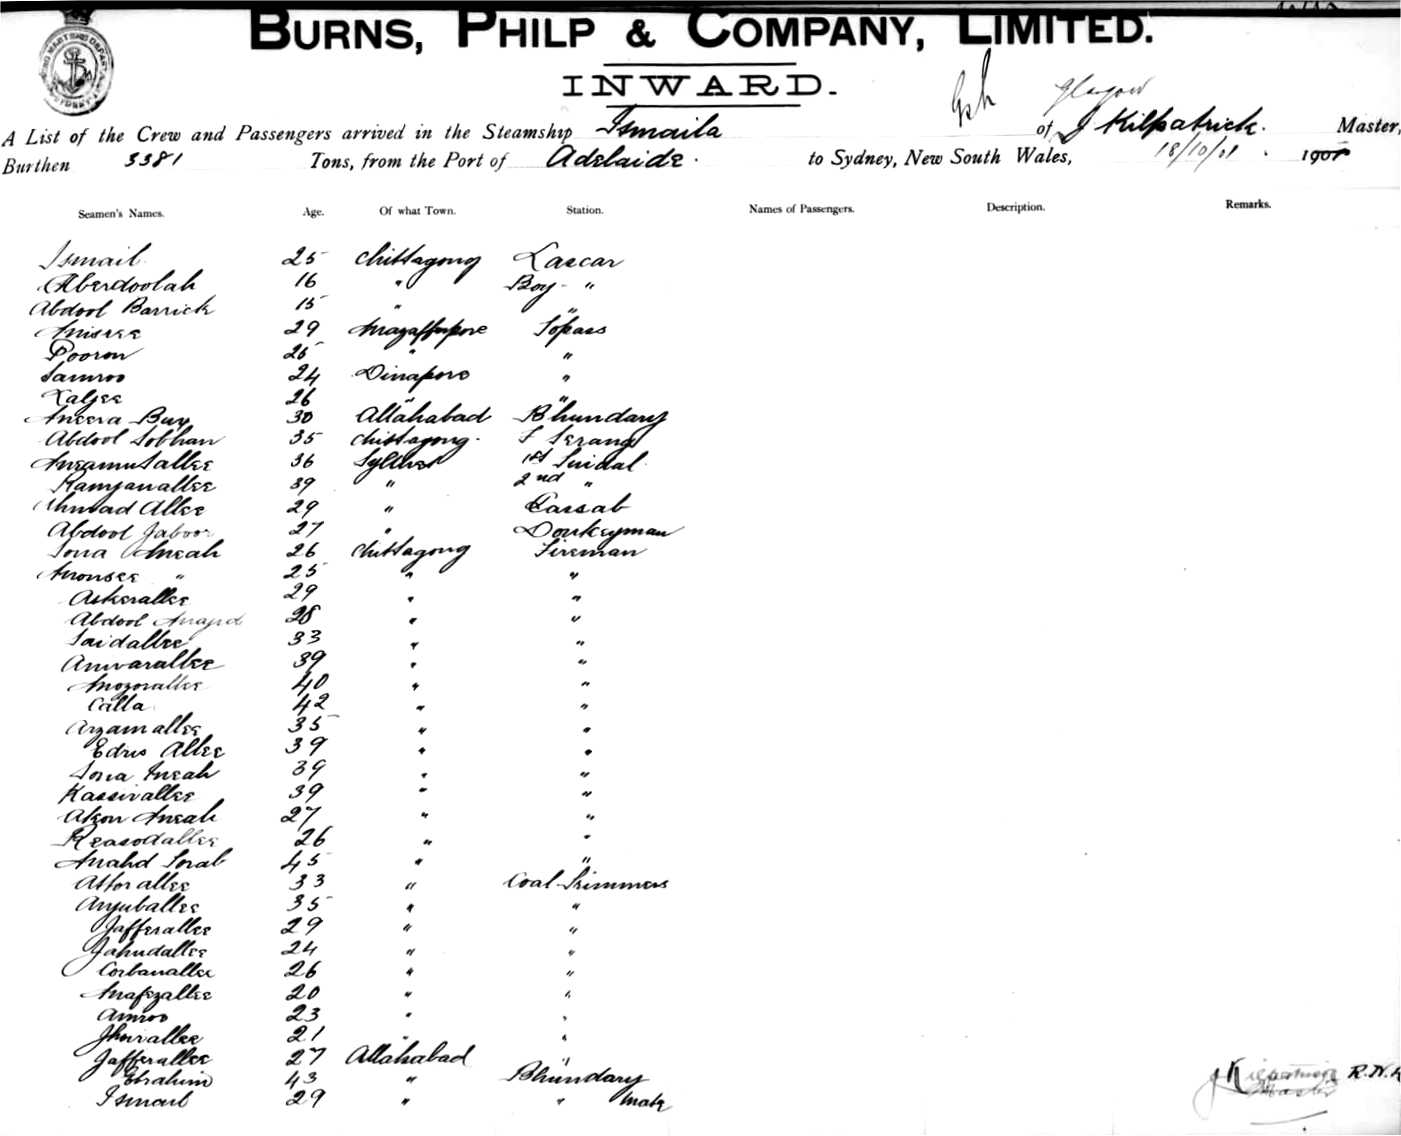 BURNS, PHILP & COMPANY, LIMITED.
INWARD.
Glasgow
A List of the Crew and Passengers arrived in the Steamship Ismaila of J Kilpatrick. Master,
Burthen 3381 Tons, from the Port of Adelaide. to Sydney, New South Wales, 18/10/01. 1901
Seamen's Names. Age. Of what Town. Station. Names of Passengers. Description. Remarks.
Ismail 25 Chittagong Lascar
Aberdoolah 16 " Boy "
Abdool Barrick 15 " "
29 Mozafferpore Topass
Pooron 25 " "
Samroo 24 Dinapore "
Laljee 26 " "
Meera Bux 30 Allahabad Bhundary
Abdool Sobhan 35 Chittagong. F Serang
36 Sylhet 1st Tindal
Ramjanallee 39 " 2nd "
Ahmad Allee 29 " Cassab
Abdool Jaboor 27 " Donkeyman
Sona Meah 26 Chittagong Fireman
Monsee " 25 " "
Askerallee 29 " "
Abdool Majid 28 " "
Saidallee 33 " "
Anwarallee 39 " "
Mozorallee 40 " "
Calla 42 " "
Azamallee 35 " "
Edris Allee 39 " "
Sona Meah 39 " "
Kassivallee 39 " "
Akon Meah 27 " "
Reasodallee 26 " "
45 " "
Attorallee 33 " Coal Trimmers
Ayuballee 35 " "
Jafferallee 29 " "
Jahudallee 24 " "
Corbanallee 26 " "
Mafezallee 20 " "
Amroo 23 " "
21 " "
Jafferallee 27 Allahabad "
Ebrahim 43 " Bhundary
Ismail 29 " " Mate
J Kilpatrick R.N.R
Master